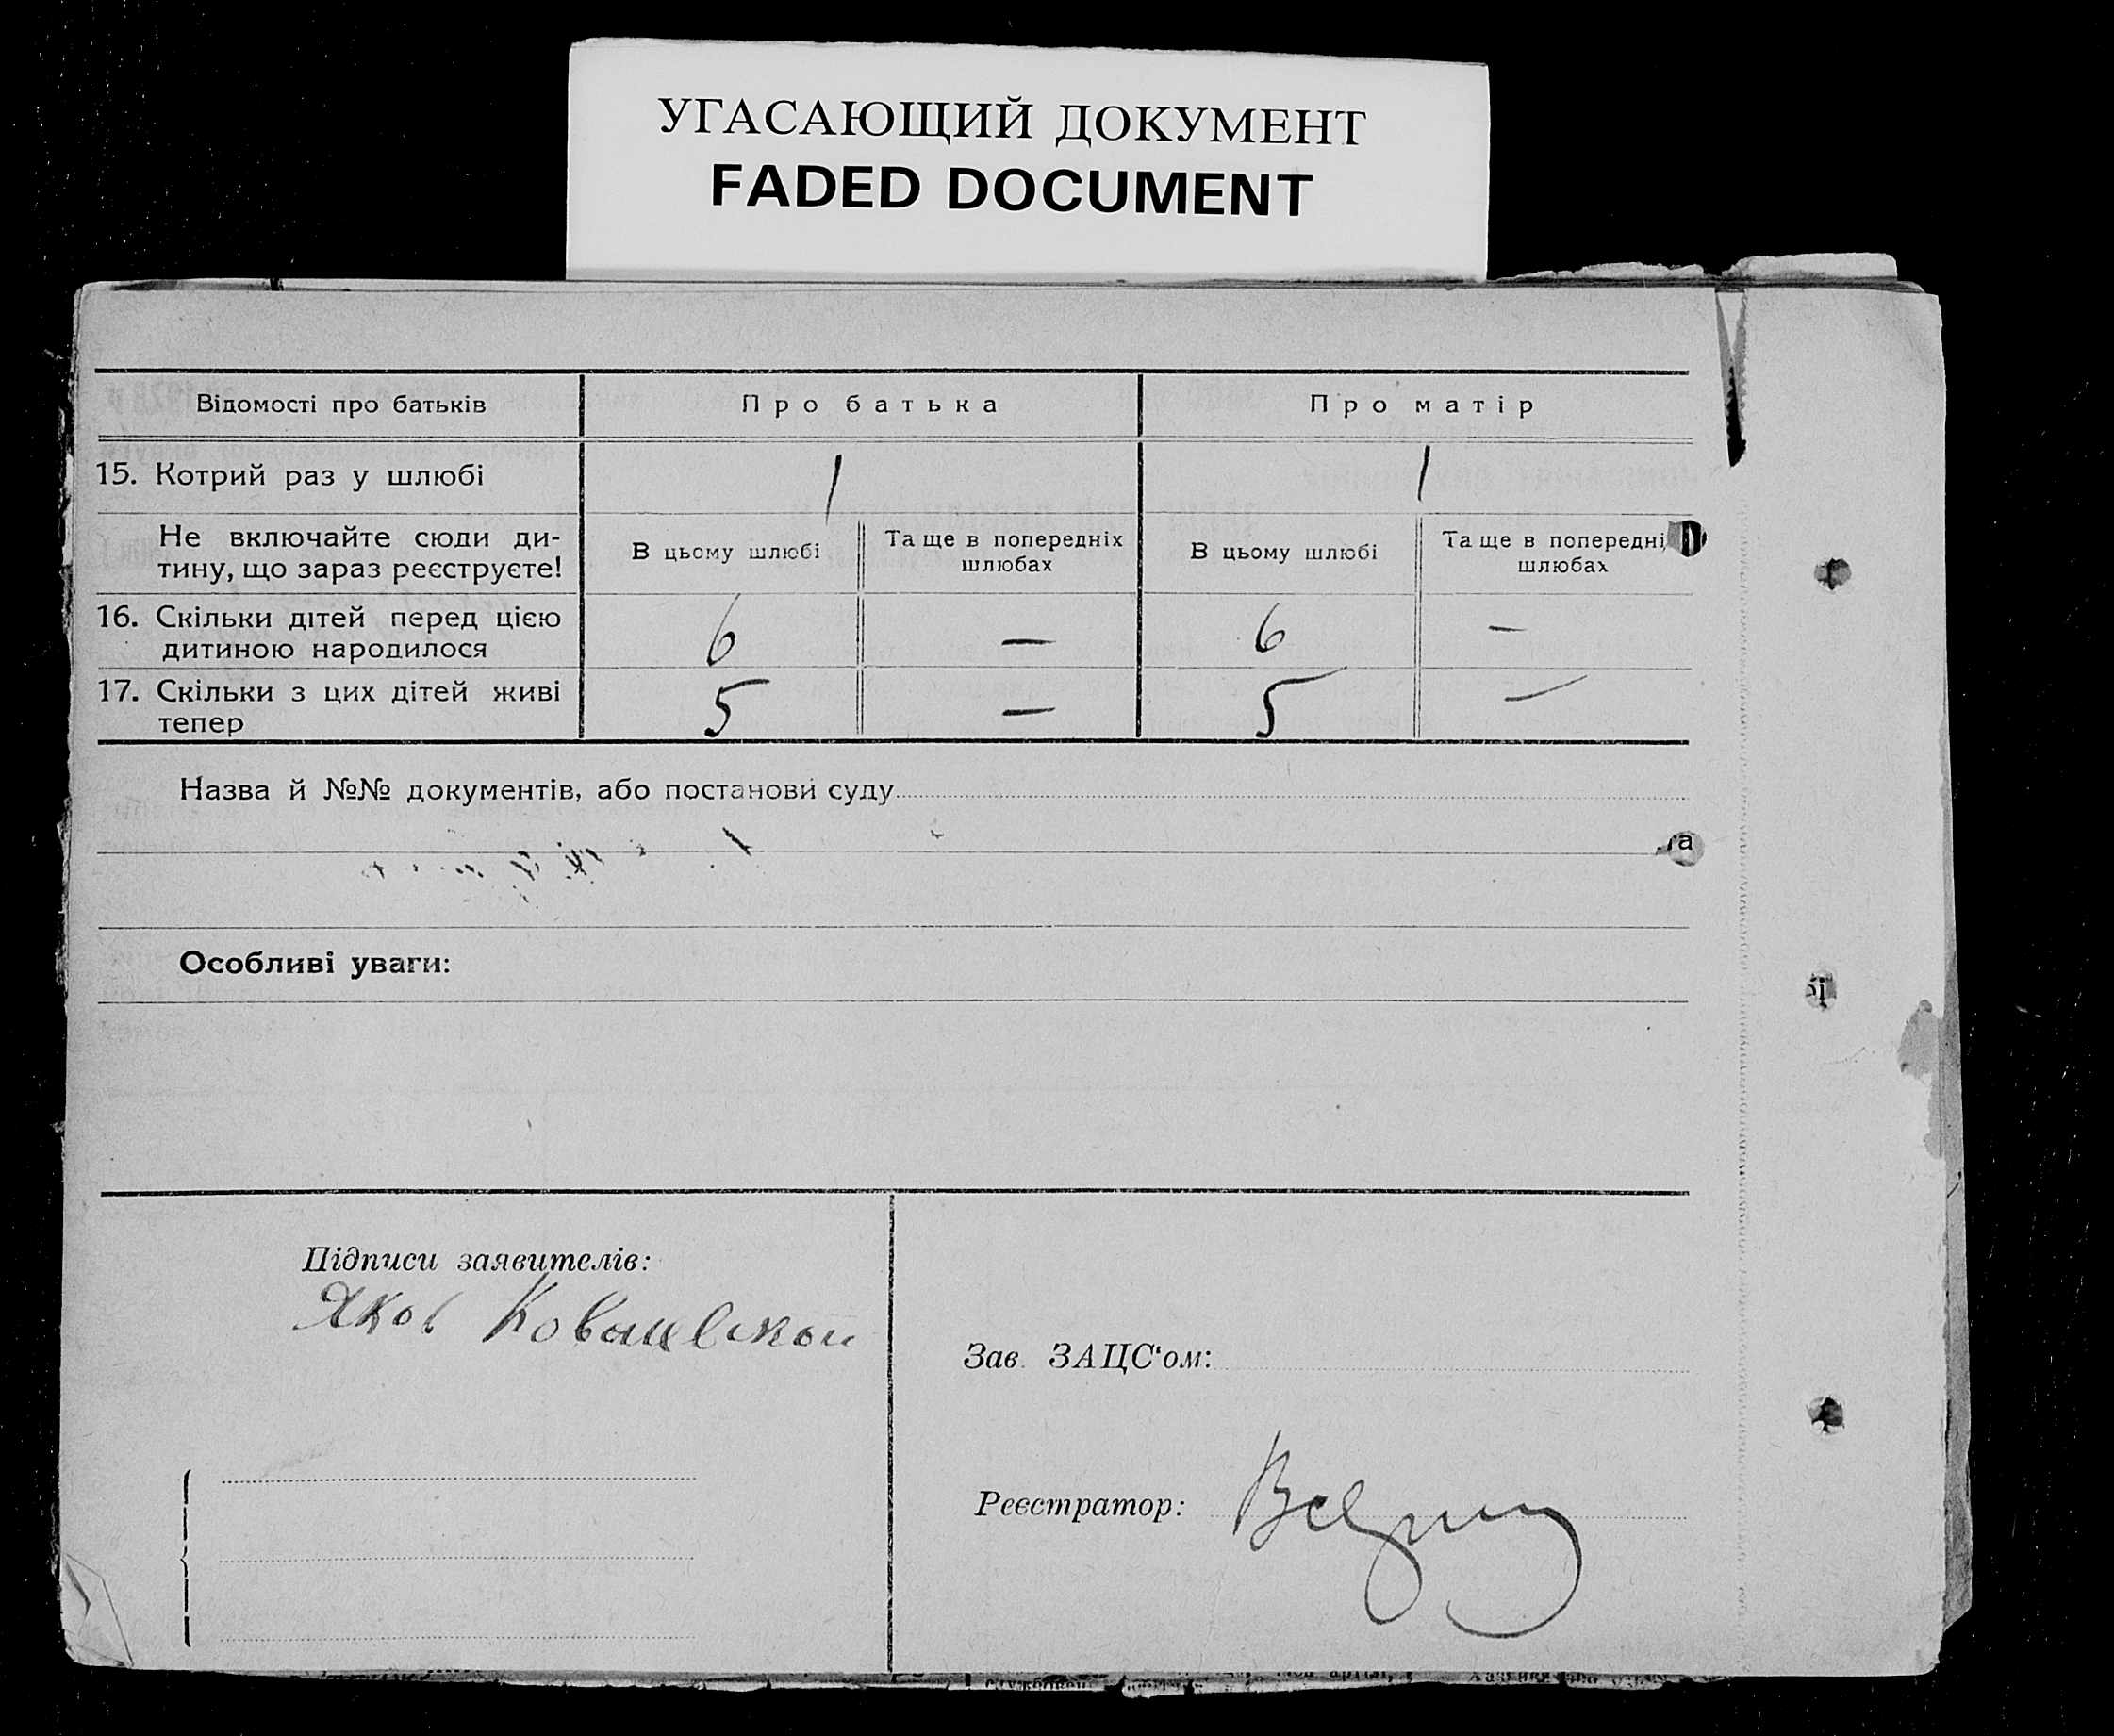 УГАСАЮЩИЙ ДОКУМЕНТ
FADED DOCUMENT
Відомості про батьків Про батька Про матір
15. Котрий раз у шлюбі 1 1
Не включайте сюди ди-
тину, що зараз реєструєте!
В цьому шлюбі
Та ще в попередніх
шлюбах
В цьому шлюбі
Та ще в попередні
шлюбах
16. Скільки дітей перед цією
дитиною народилося
6 — 6 —
17. Скільки з цих дітей живі
тепер
5 — 5 —
Назва й №№ документів, або постанови суду
та
Особливі уваги:
Підписи заявителів:
Яков
Зав. ЗАЦС'ом:
Реєстратор: